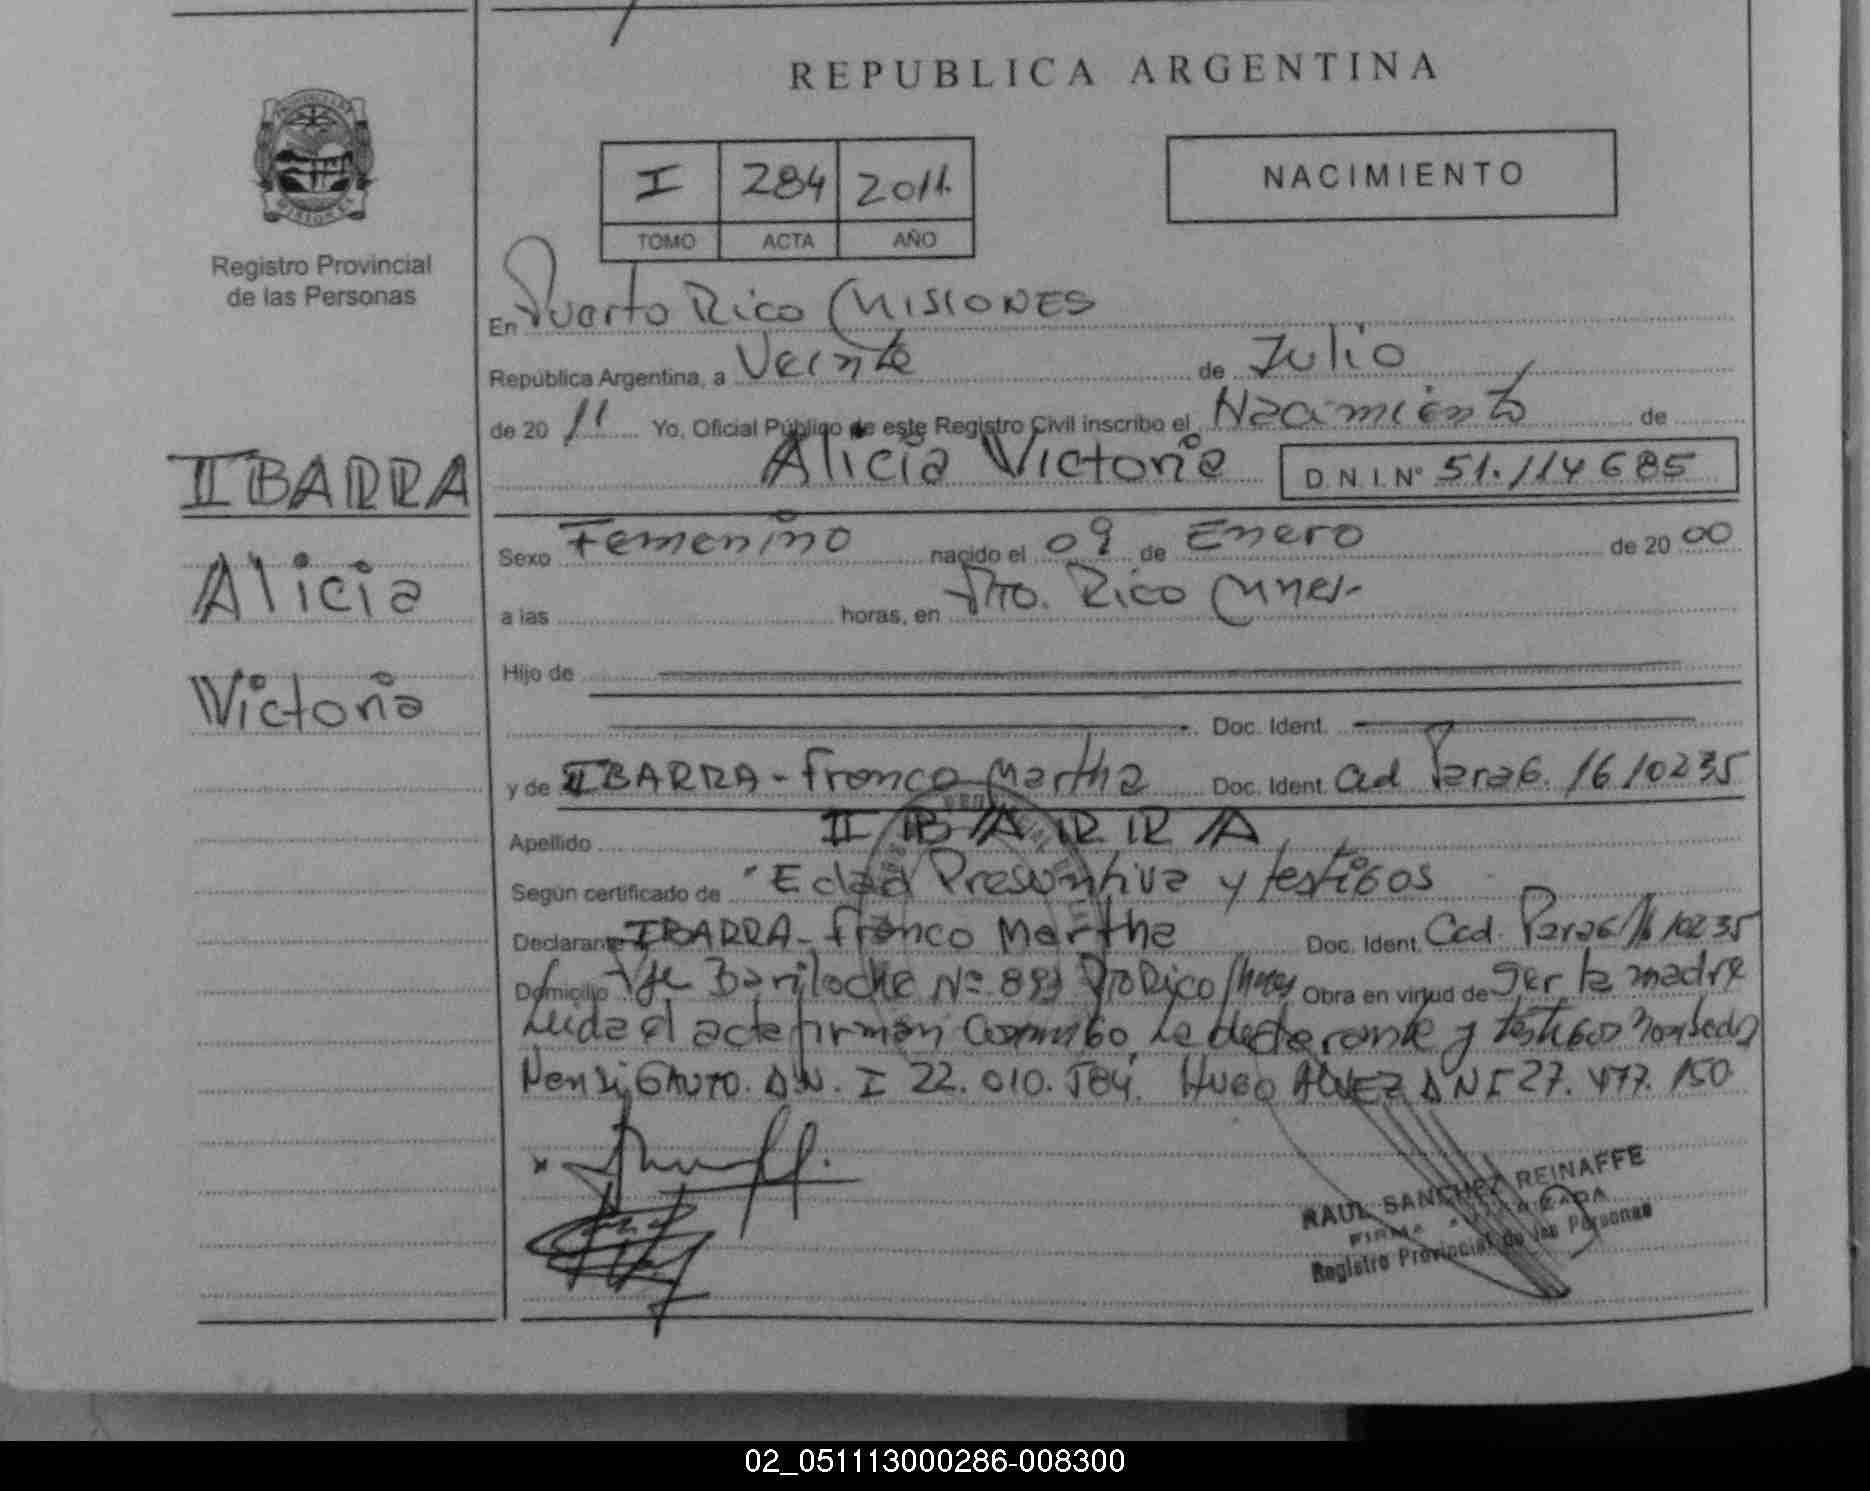 REPUBLICA ARGENTINA
I 284 2011.
TOMO ACTA AÑO
NACIMIENTO
PROVINCIA DE
MISIONES
Registro Provincial
de las Personas
En Puerto Rico (MISIONES
República Argentina, a Veinte de Julio
de 20 11 Yo, Oficial Público de este Registro Civil inscribo el Nacimiento de
Alicia Victoria D.N.I.Nº 51.114685
IBARRA
Alicia
Victoria
Sexo Femenino nacido el 09 de Enero de 20 00
a las horas, en Pto. Rico (Mnes.
Hijo de
Doc. Ident.
y de IBARRA - Franco Martha Doc. Ident. Ced Parag. 1610235
Apellido IBARRA
Según certificado de Edad Presuntiva y testigos
Declarante IBARRA - Franco Martha Doc. Ident. Ced. Parag 1610235
Domicilio Bariloche Nº 893 Pto Rico Mnes Obra en virtud de ser la madre
Leida el acta firman conmigo, la declarante y testigos
GAUTO. D.N.I 22.010.584. HUGO ALVEZ DNI 27.477.150
RAUL SANCHEZ REINAFFE
FIRMA AUTORIZADA
Registro Provincial de las Personas
02_051113000286-008300